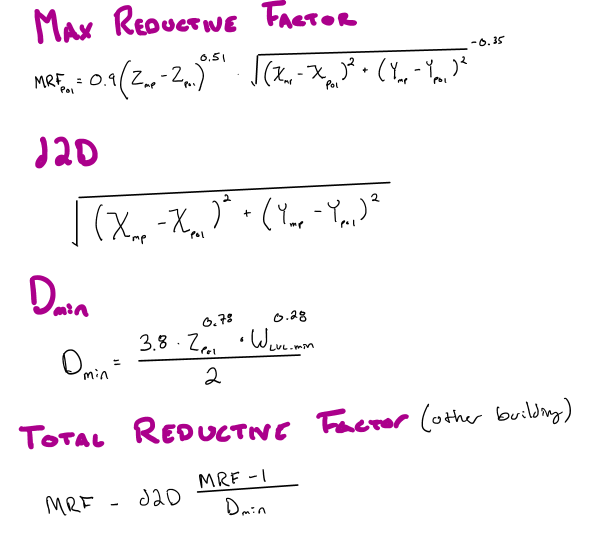 MAX REDUCTIVE FACTOR
MRF_poi = 0.9(Z_mp - Z_poi)^0.51 · √((X_mp - X_poi)^2 + (Y_mp - Y_poi)^2)^-0.35
d2D
√((X_mp - X_poi)^2 + (Y_mp - Y_poi)^2)
D_min
D_min = (3.8 · Z_poi^0.78 · W_LVL.min^0.28) / 2
TOTAL REDUCTIVE FACTOR (other building)
MRF - d2D (MRF - 1) / D_min